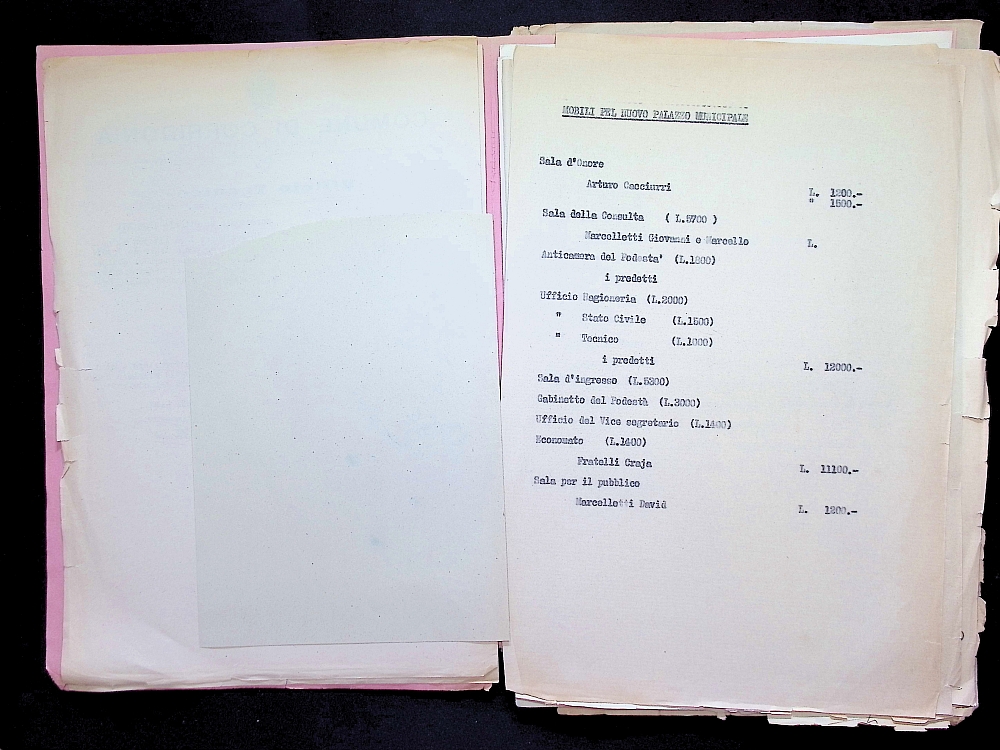 MOBILI PEL NUOVO PALAZZO MUNICIPALE
Sala d'Onore
Arturo Cacciurri L. 1200.-
" 1500.-
Sala della Consulta ( L.5700 )
Marcelletti Giovanni e Marcello L.
Anticamera del Podesta' (L.1800)
i predetti
Ufficio Ragioneria (L.2000)
" Stato Civile (L.1500)
" Tecnico (L.1000)
i predetti L. 12000.-
Sala d'ingresso (L.5300)
Gabinetto del Podestà (L.3000)
Ufficio del Vice segretario (L.1400)
Economato (L.1400)
Fratelli Craja L. 11100.-
Sala per il pubblico
Marcelletti David L. 1200.-